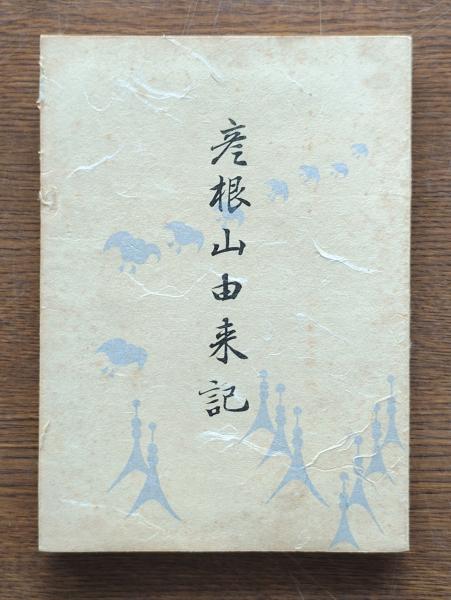 彦根山由来記